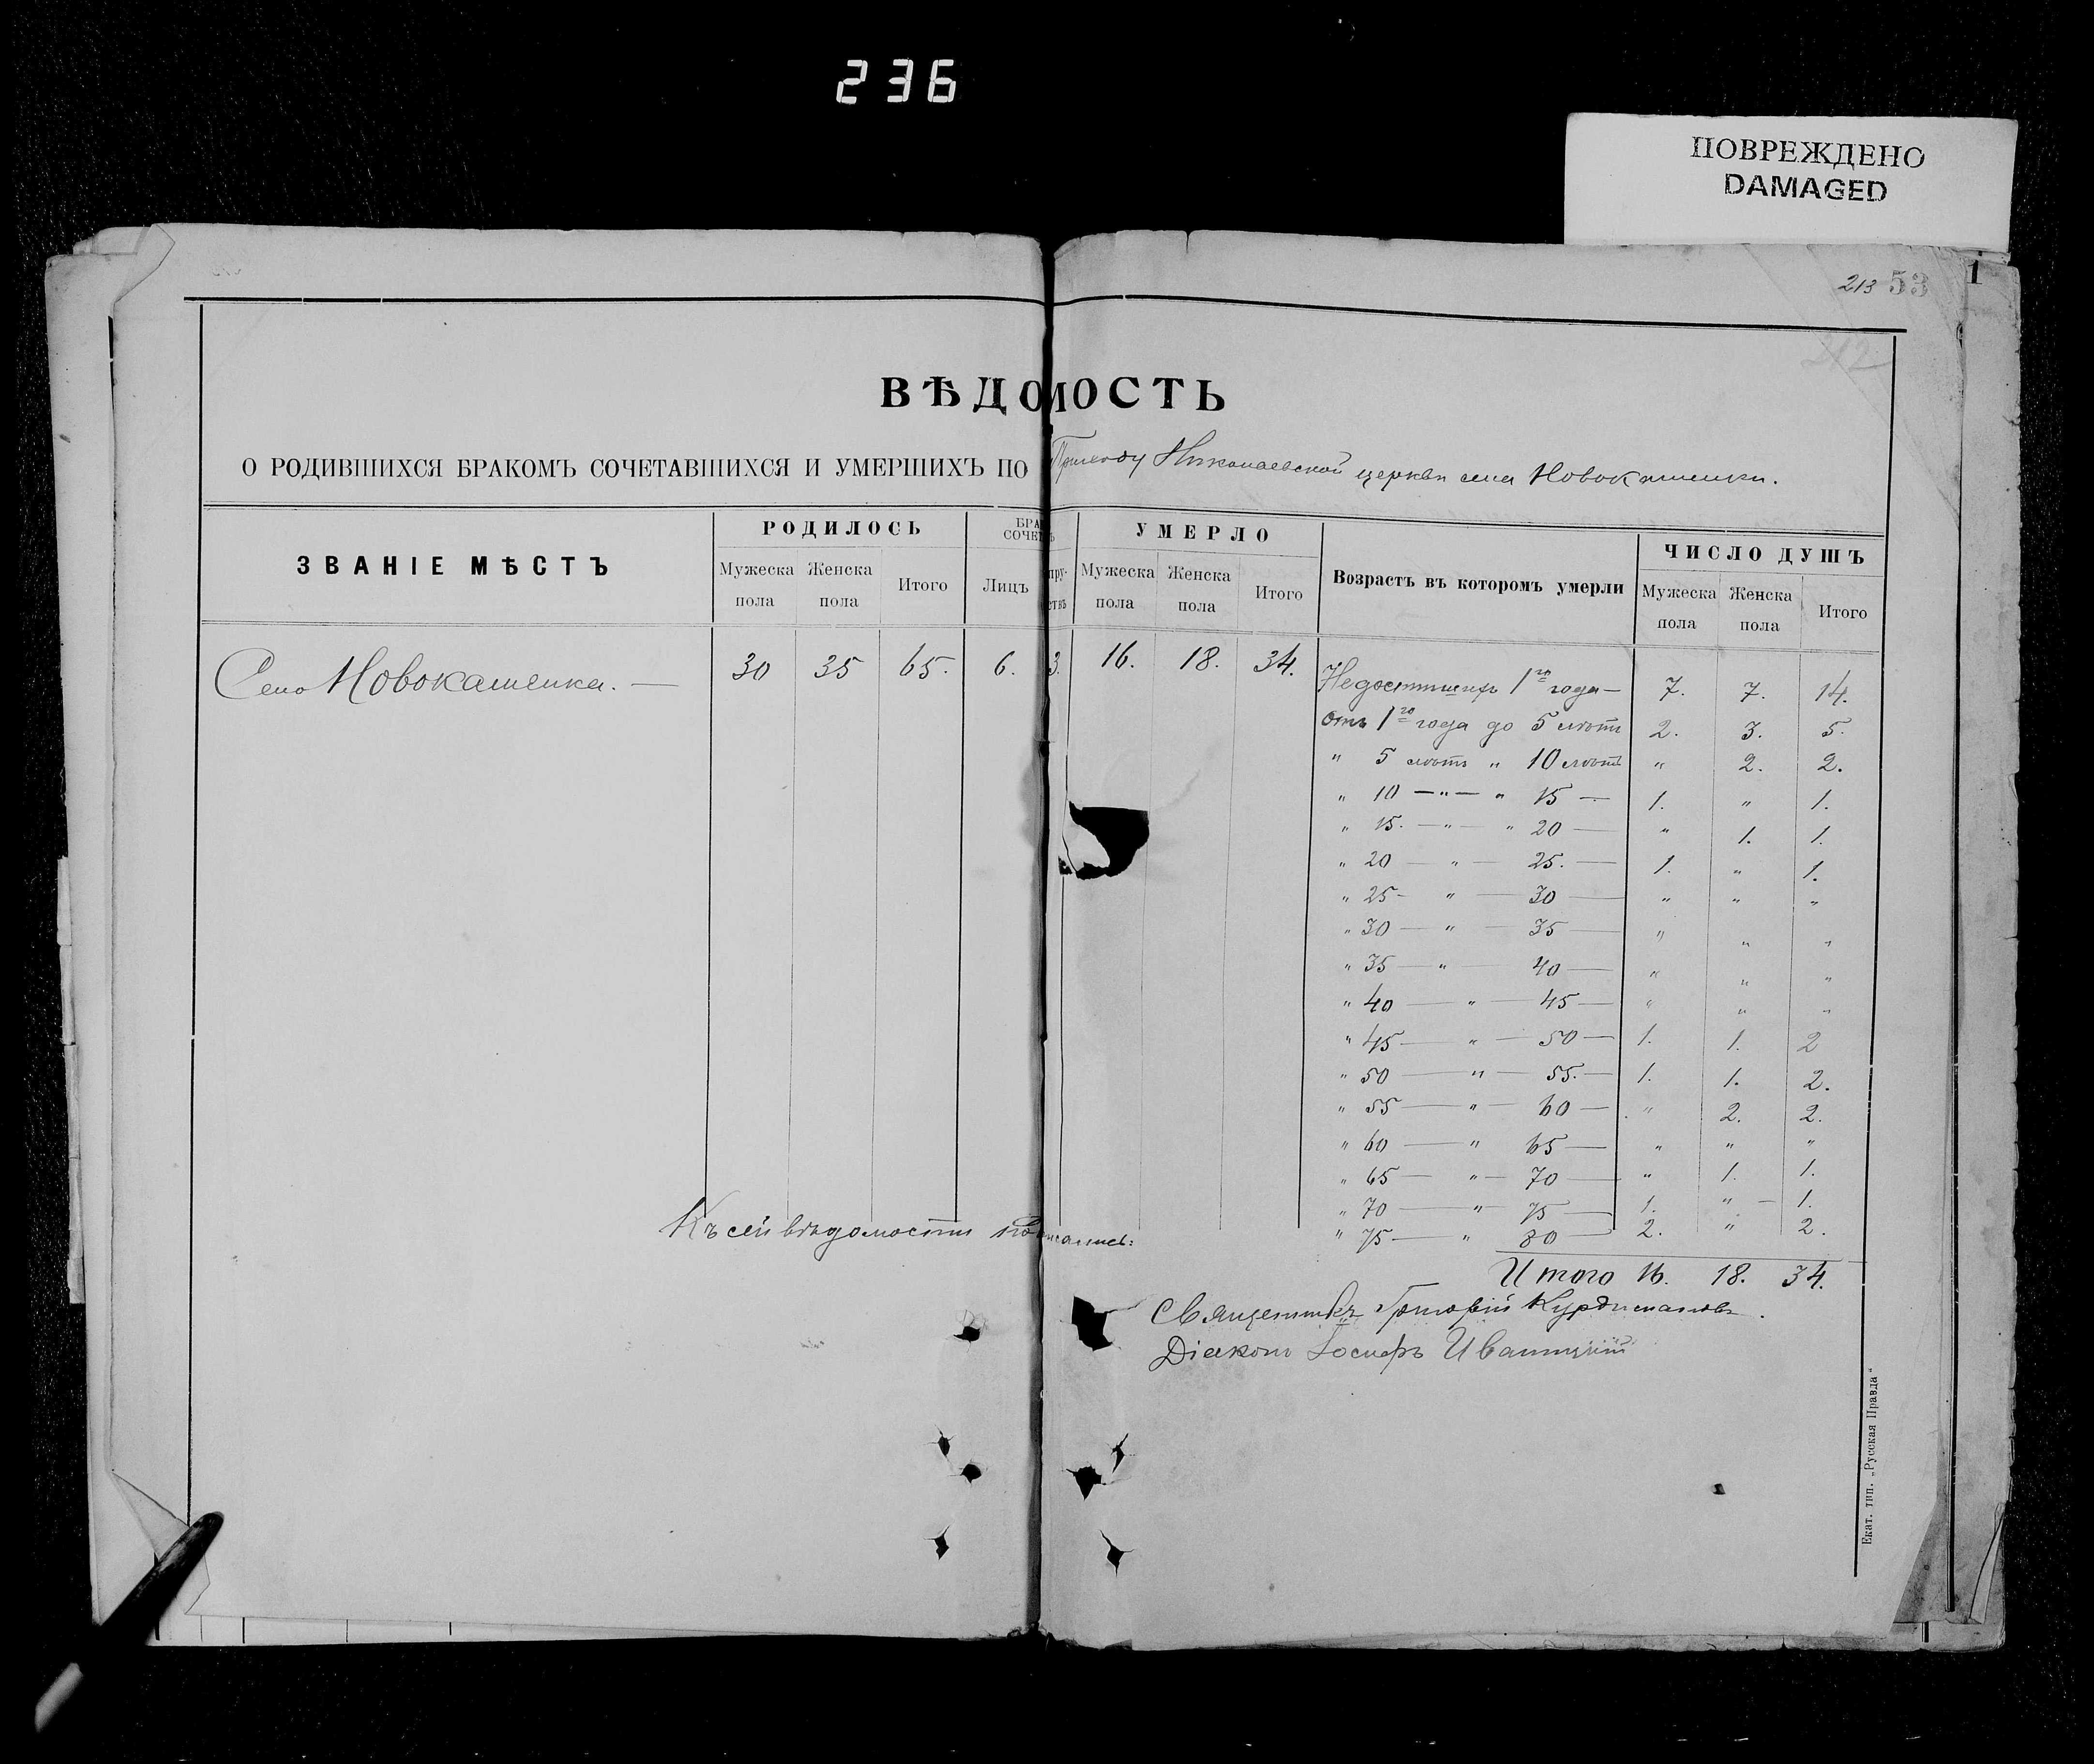 236
ПОВРЕЖДЕНО
DAMAGED
213 53
1
212
ВѢДОМОСТЬ
О РОДИВШИХСЯ БРАКОМЪ СОЧЕТАВШИХСЯ И УМЕРШИХЪ ПО Приходу Николаевской церкви села Новокашенки.
ЗВАНІЕ МѢСТЪ
РОДИЛОСЬ
Мужеска пола
Женска пола
Итого
БРА
СОЧЕ
Лицъ
УМЕРЛО
Мужеска пола
Женска пола
Итого
Возрастъ въ которомъ умерли
ЧИСЛО ДУШЪ
Мужеска пола
Женска пола
Итого
Село Новокашенка. — 30 35 65. 6. 3. 16. 18. 34.
Недостигшихъ 1го года — 7. 7. 14.
Отъ 1го года до 5 лѣтъ 2. 3. 5.
" 5 лѣтъ " 10 лѣтъ " 2. 2.
" 10 —"— " 15 — 1. " 1.
" 15. —"— " 20 — " 1. 1.
" 20 — " — 25. — 1. " 1.
" 25 - " — 30 — " " "
" 30 — " — 35 — " " "
" 35 — " — 40 — " " "
" 40 — " — 45 — " " "
" 45 — " — 50 — 1. 1. 2
" 50 — " — 55. — 1. 1. 2.
" 55 — " — 60 — " 2. 2.
" 60 — " 65 — " " "
" 65 — " — 70 — " 1. 1.
" 70 — " 75 — 1. " — 1.
" 75 — " 80 — 2. " 2.
Итого 16. 18. 34.
Къ сей вѣдомости подписались:
Священникъ Григорій
Діаконъ Іосифъ Иваницкій
Екат. тип. „Русская Правда"